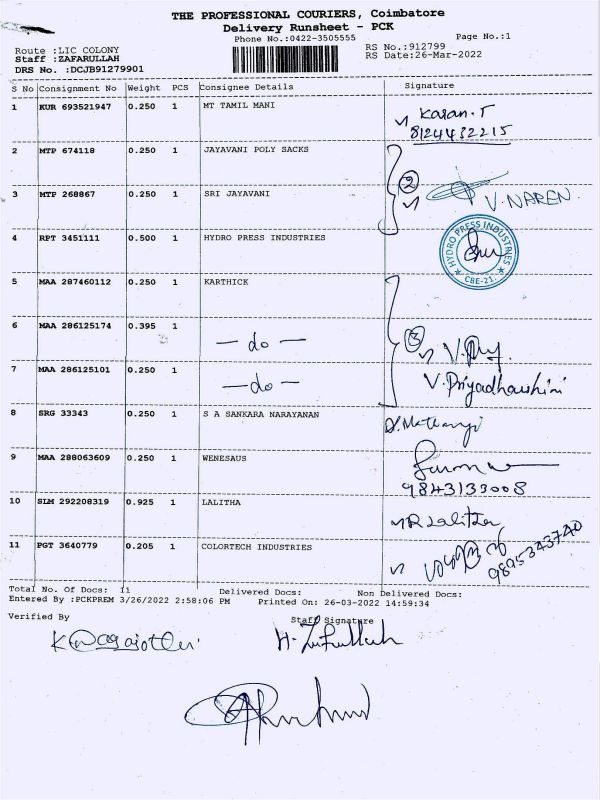 THE PROFESSIONAL COURIERS, Coimbatore
Delivery Runsheet - PCK
Phone No.:0422-3505555 Page No.:1
Route :LIC COLONY RS No.:912799
Staff :ZAFARULLAH RS Date:26-Mar-2022
DRS No. :DCJB91279901
S No Consignment No Weight PCS Consignee Details Signature
1 KUR 693521947 0.250 1 MT TAMIL MANI Karan.T
8124432215
2 MTP 674118 0.250 1 JAYAVANI POLY SACKS
3 MTP 268867 0.250 1 SRI JAYAVANI 2 V.NAREN
4 RPT 3451111 0.500 1 HYDRO PRESS INDUSTRIES HYDRO PRESS INDUSTRIES CBE-21.
5 MAA 287460112 0.250 1 KARTHICK
6 MAA 286125174 0.395 1 - do - 3
7 MAA 286125101 0.250 1 - do - V.Priyadharshini
8 SRG 33343 0.250 1 S A SANKARA NARAYANAN
9 MAA 288063609 0.250 1 WENESAUS
9843133008
10 SLM 292208319 0.925 1 LALITHA R Lalitha
11 PGT 3640779 0.205 1 COLORTECH INDUSTRIES
Total No. Of Docs: 11 Delivered Docs: Non Delivered Docs:
Entered By :PCKPREM 3/26/2022 2:58:06 PM Printed On: 26-03-2022 14:59:34
Verified By Staff Signature